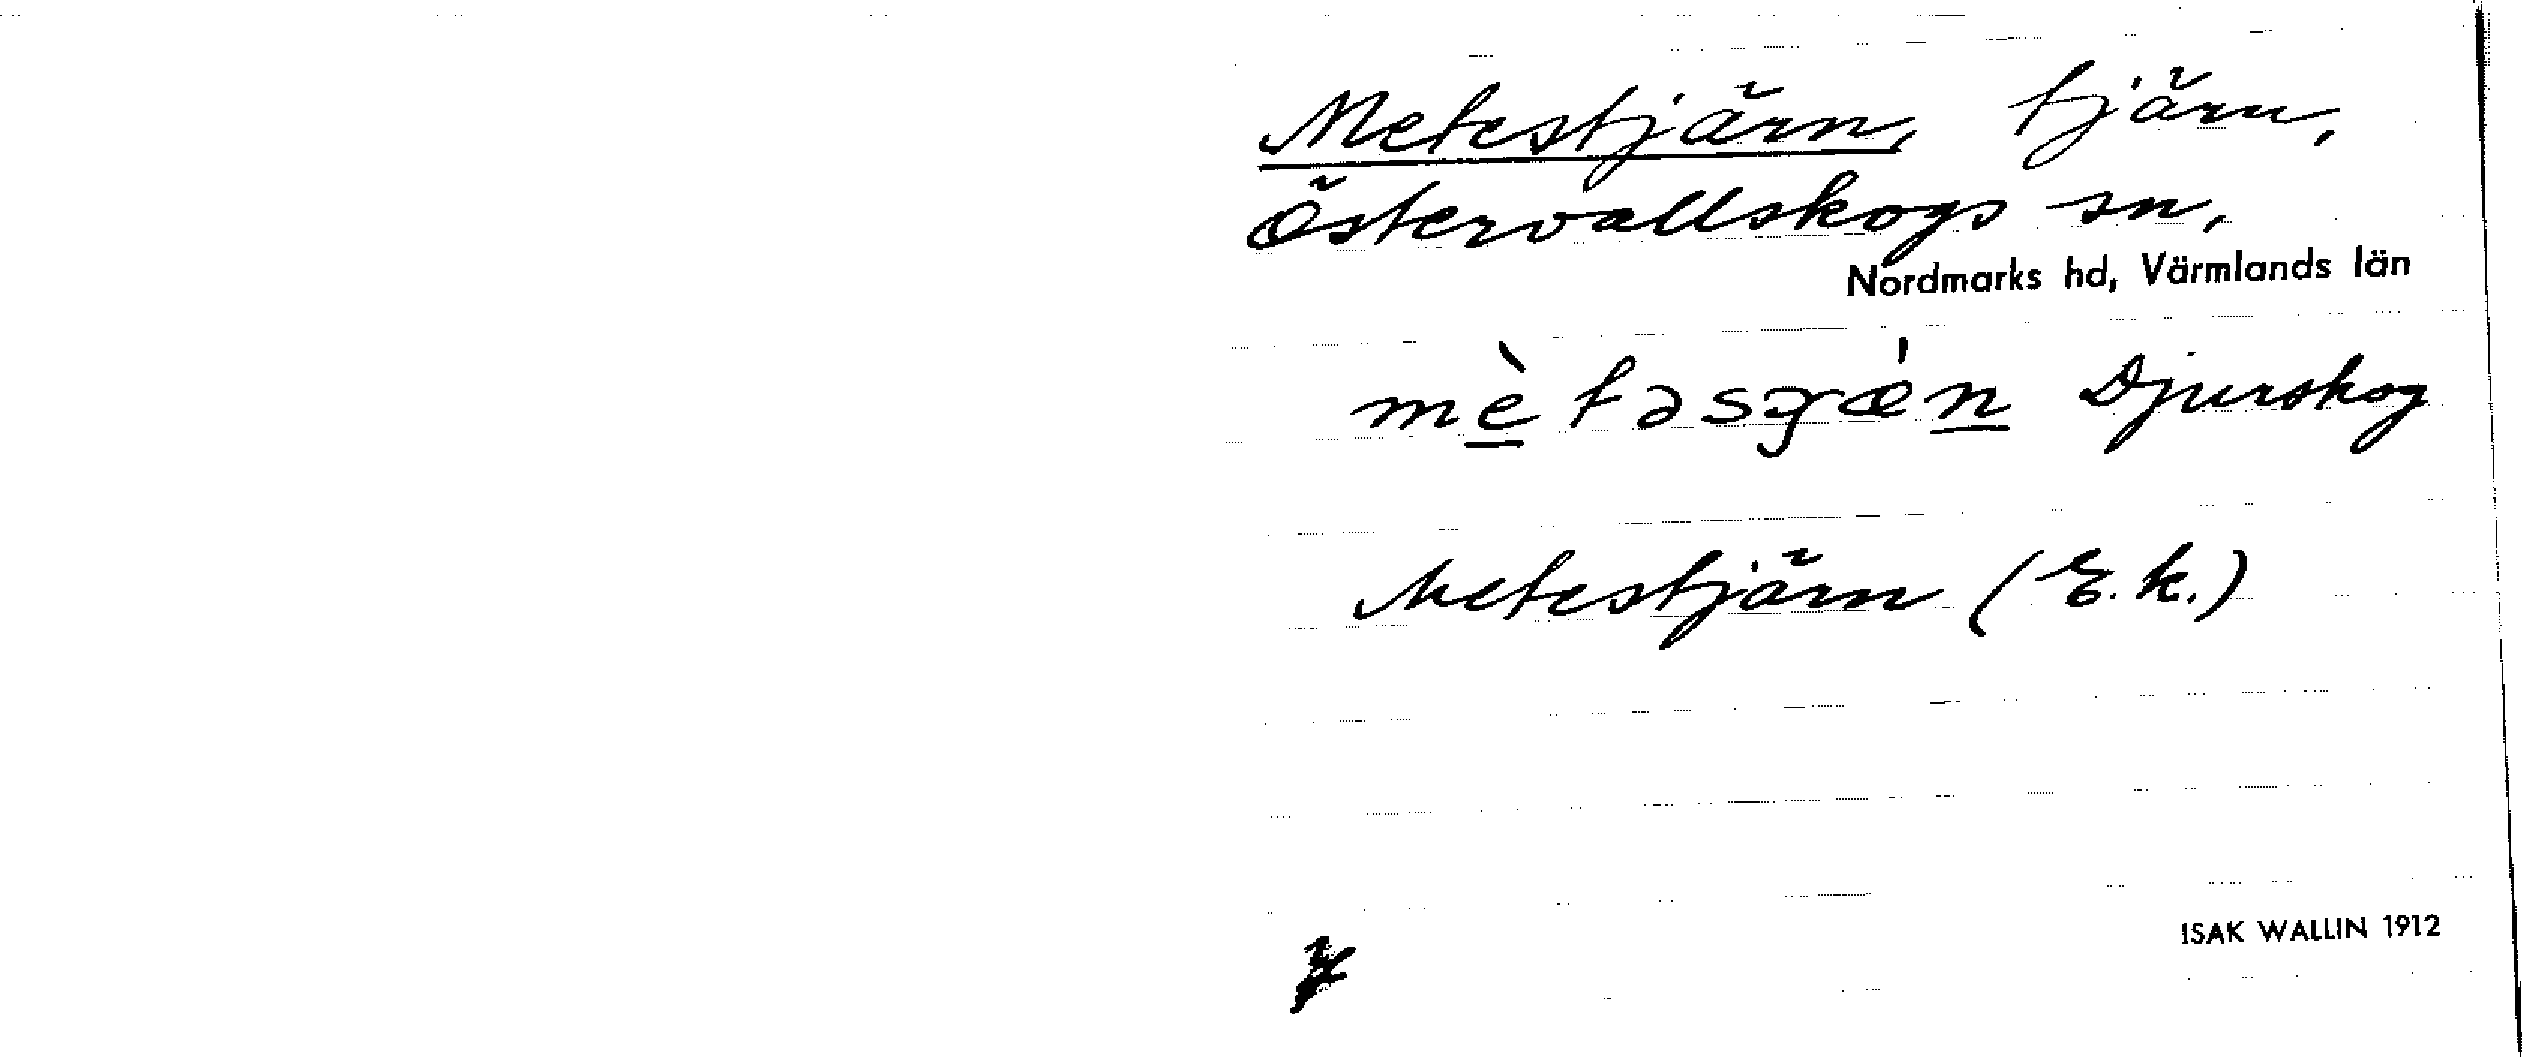 Metestjärn, tjärn,
Östervallskogs sn,
Nordmarks hd, Värmlands län
Djurskog
Metestjärn (E.k.)
ISAK WALLIN 1912